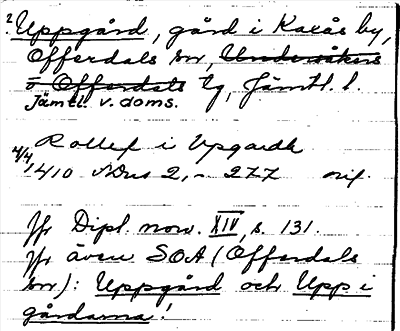 2 Uppgård, gård i Kaxås by,
Offerdals sn, Undersåkers
o Offerdals tg, Jämtl. l.
Jämtl. v. doms.
Rollef i Upgardh
4/4 1410 SDns 2, - 277 orig.
Jfr Dipl. norv. XIV, s. 131.
Jfr även SOA (Offerdals
sn): Uppgård och Upp i
gårdarna!